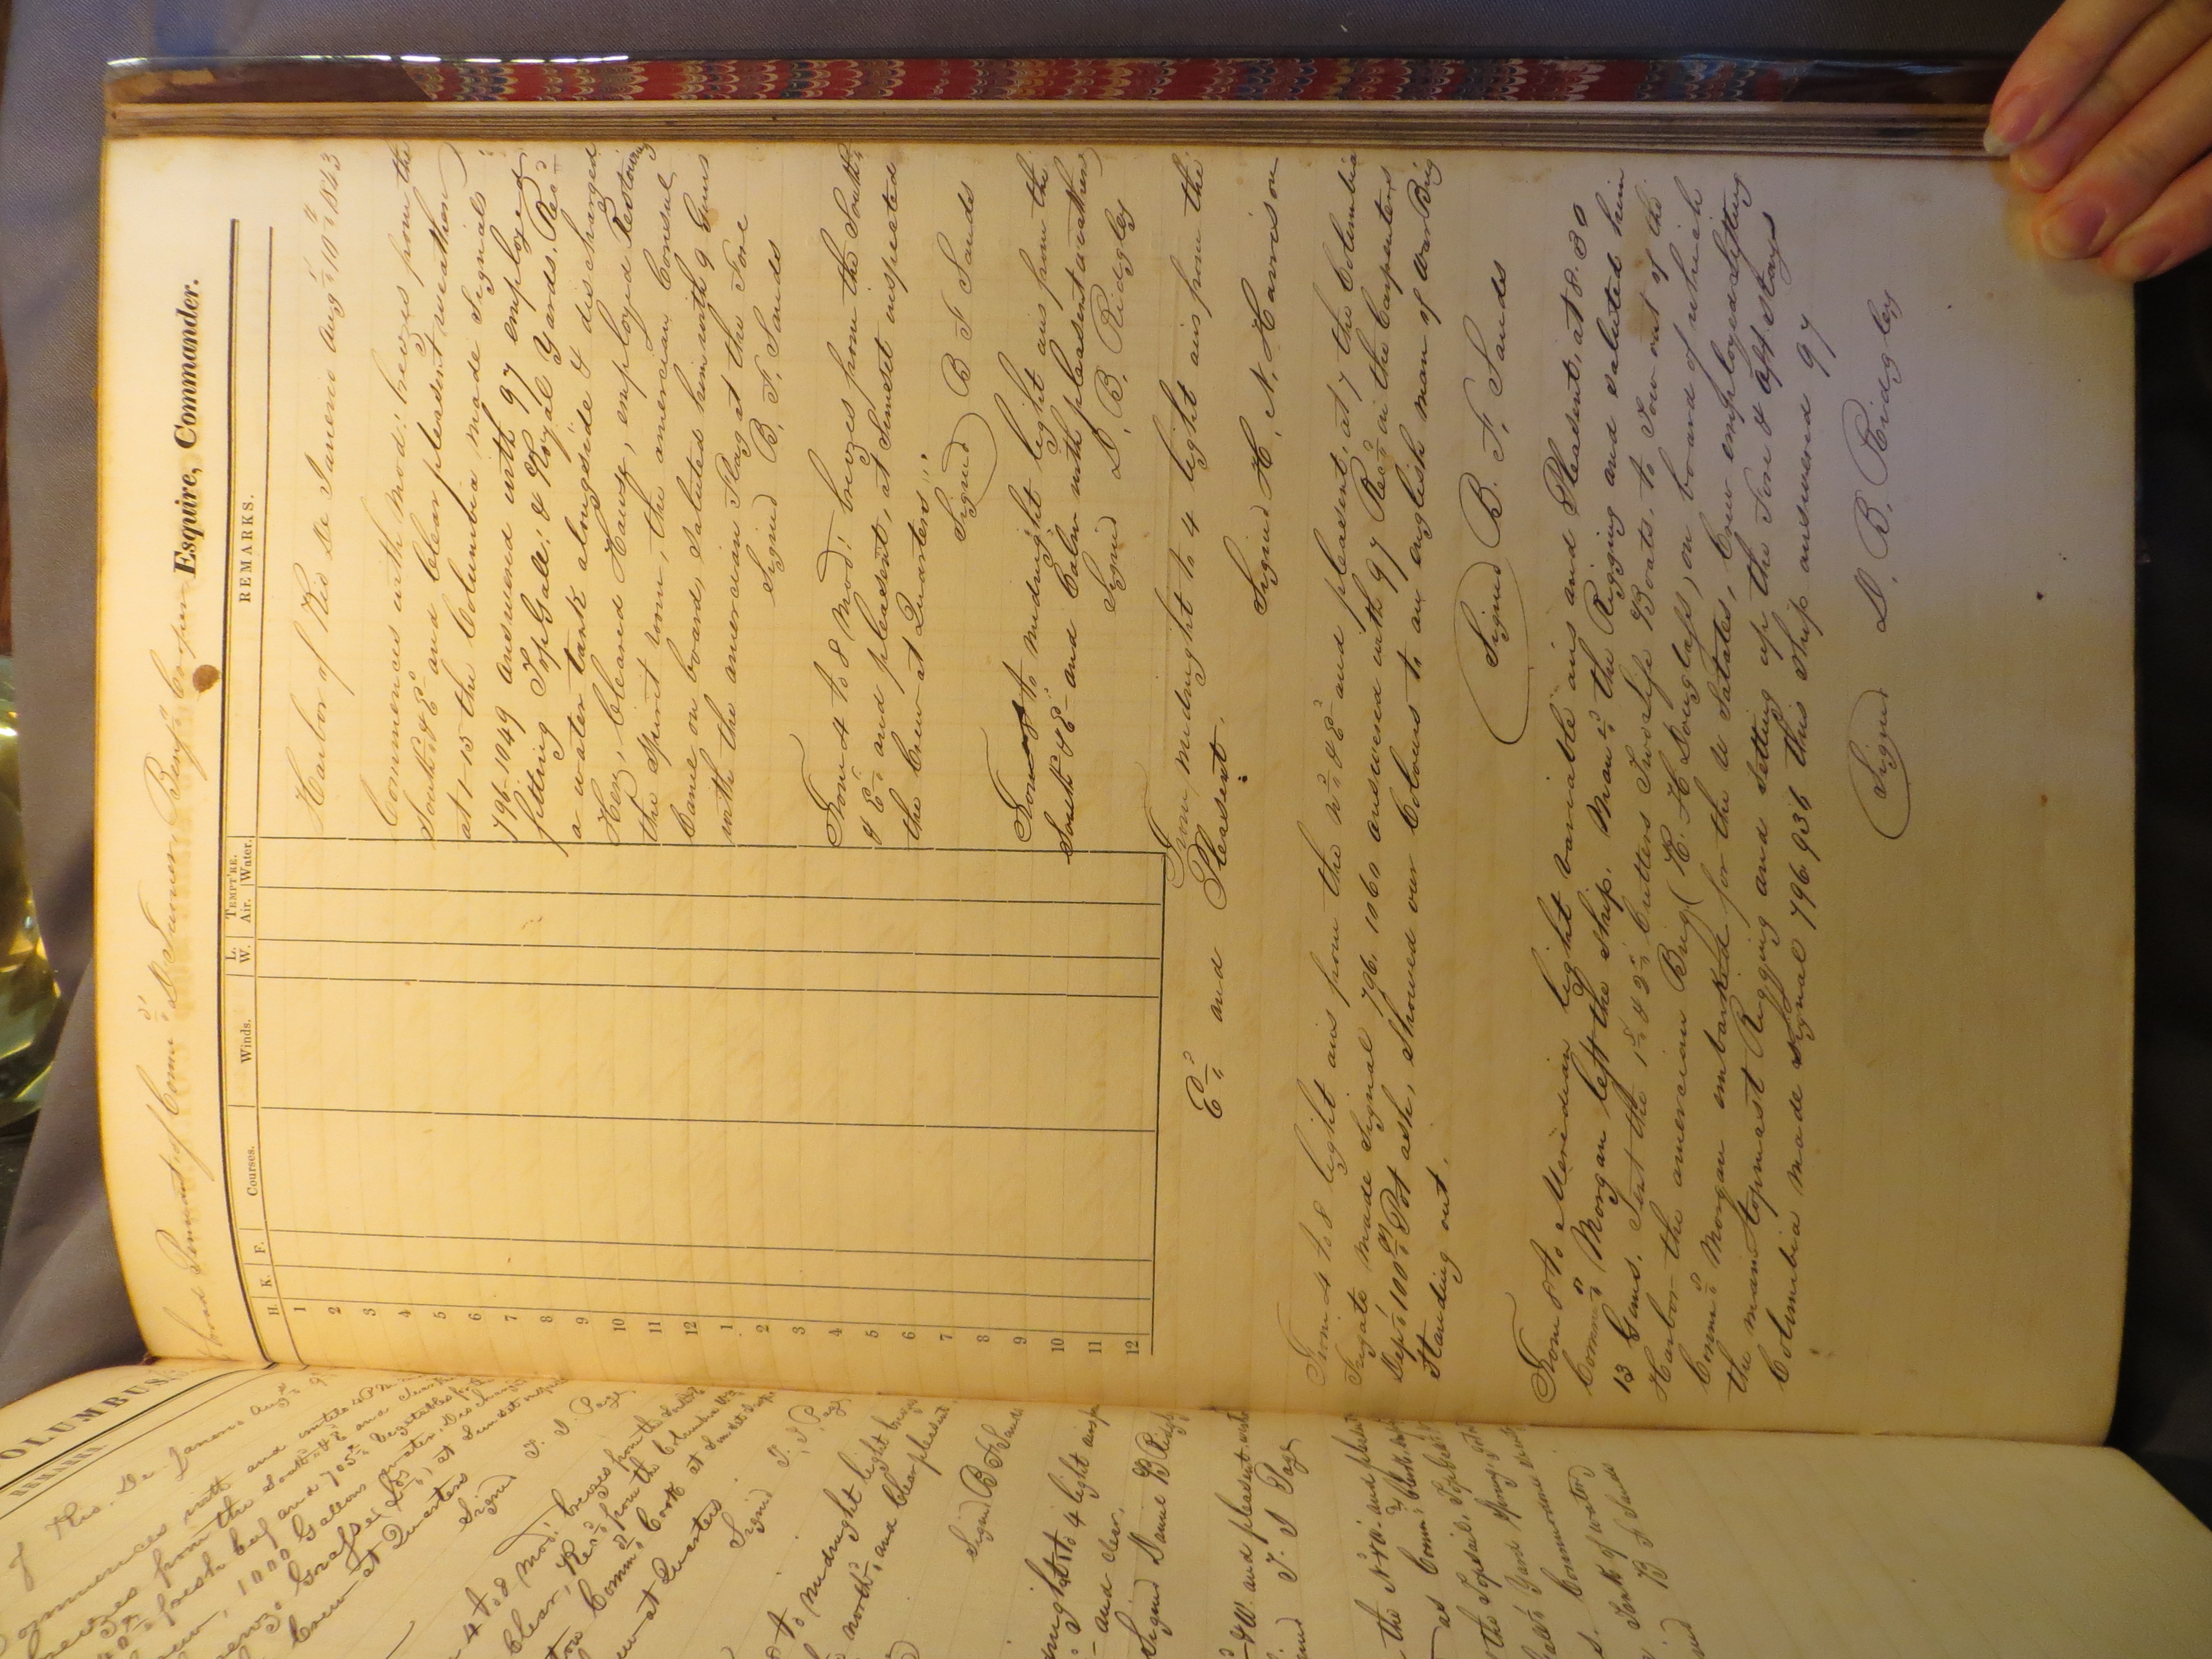 Broad Pennant of Comm^o D Turner Benj^n Cooper Esquire, Commander.
H. K. F. Courses. Winds. L. W. TEMPT'RE. Air. Water. REMARKS.
1
2
3
4
5
6
7
8
9
10
11
12
1
2
3
4
5
6
7
8
9
10
11
12
Harbor of Rio De Janerio Aug^t 10^th 1843
Commences with Mod: brezes from the
South^d & E^d and Clear pleasent weather
at 1-15 the Columbia made Signals
796-1049 answered with 97 employed
fitting TopGall: & Royal Yards. Rec^d
a water tank alongside & discharged
Her, Cleared Hawse, employed Restowing
the Spirit room, the american Consul
Came on board, Saluted him with 9 Guns
with the american Flag at the Fore
Signed B. F. Sands
From 4 to 8 Mod: brezes from the South^d
& E^d and plesent, at Sunset inspected
the Crew at Quarters
Signed B F Sands
From 8 to midnight light airs from the
South^d & E^d and Calm with plesent weather
Signed D. B. Ridgley
From midnight to 4 light airs from the
E^d and Plesent.
Signed H. N. Harrison
From 4 to 8 light airs from the N^d & E^d and plesent, at 7 the Columbia
Frigate made Signal 796. 1060 answered with 97 Rec^d in the Carpenters
Dep^t 100 lb Pot ash, Showed our Colours to an english man of war Brig
Standing out.
Signed B. F. Sands
From 8 to Meredian light variable airs and Plesent, at 8.30
Comm^o Morgan left the Ship. Man^d the Rigging and saluted him
13 Guns. Sent the 1^st & 2^d Cutters Two Life Boats, to Tow out of the
Harbor the amercian Brig (R. H Douglass) on board of which
Comm^o Morgan embarked for the U States, Crew employed refitting
the main topmast Rigging and Setting up the Fore & aft Stays
Columbia made Signal 796 936 this Ship answered 97
Signed D. B. Ridgley
OLUMBUS
REMARKS
of Rio. De Janerio Aug^t 9
fresh beef and 705 lb begetables
1000 Gallons water
Crew at Quarters
Signed T. J. Page
4 to 8 Mod: brezes from the
Clear, Rec^d from the Columbia
Comm^o Cook at Sunset
at Quarters.
Signed T. J. Page
to midnight light brezes
North^d and Clear plesent
Signed B F Sands
midnight to 4 light airs
and Clear.
Signed Danie B Ridgly
& W. and plesent
T. J. Page
the N & W. and plesent
as Comm^o
the Topsails,
Tank of water
B F Sands